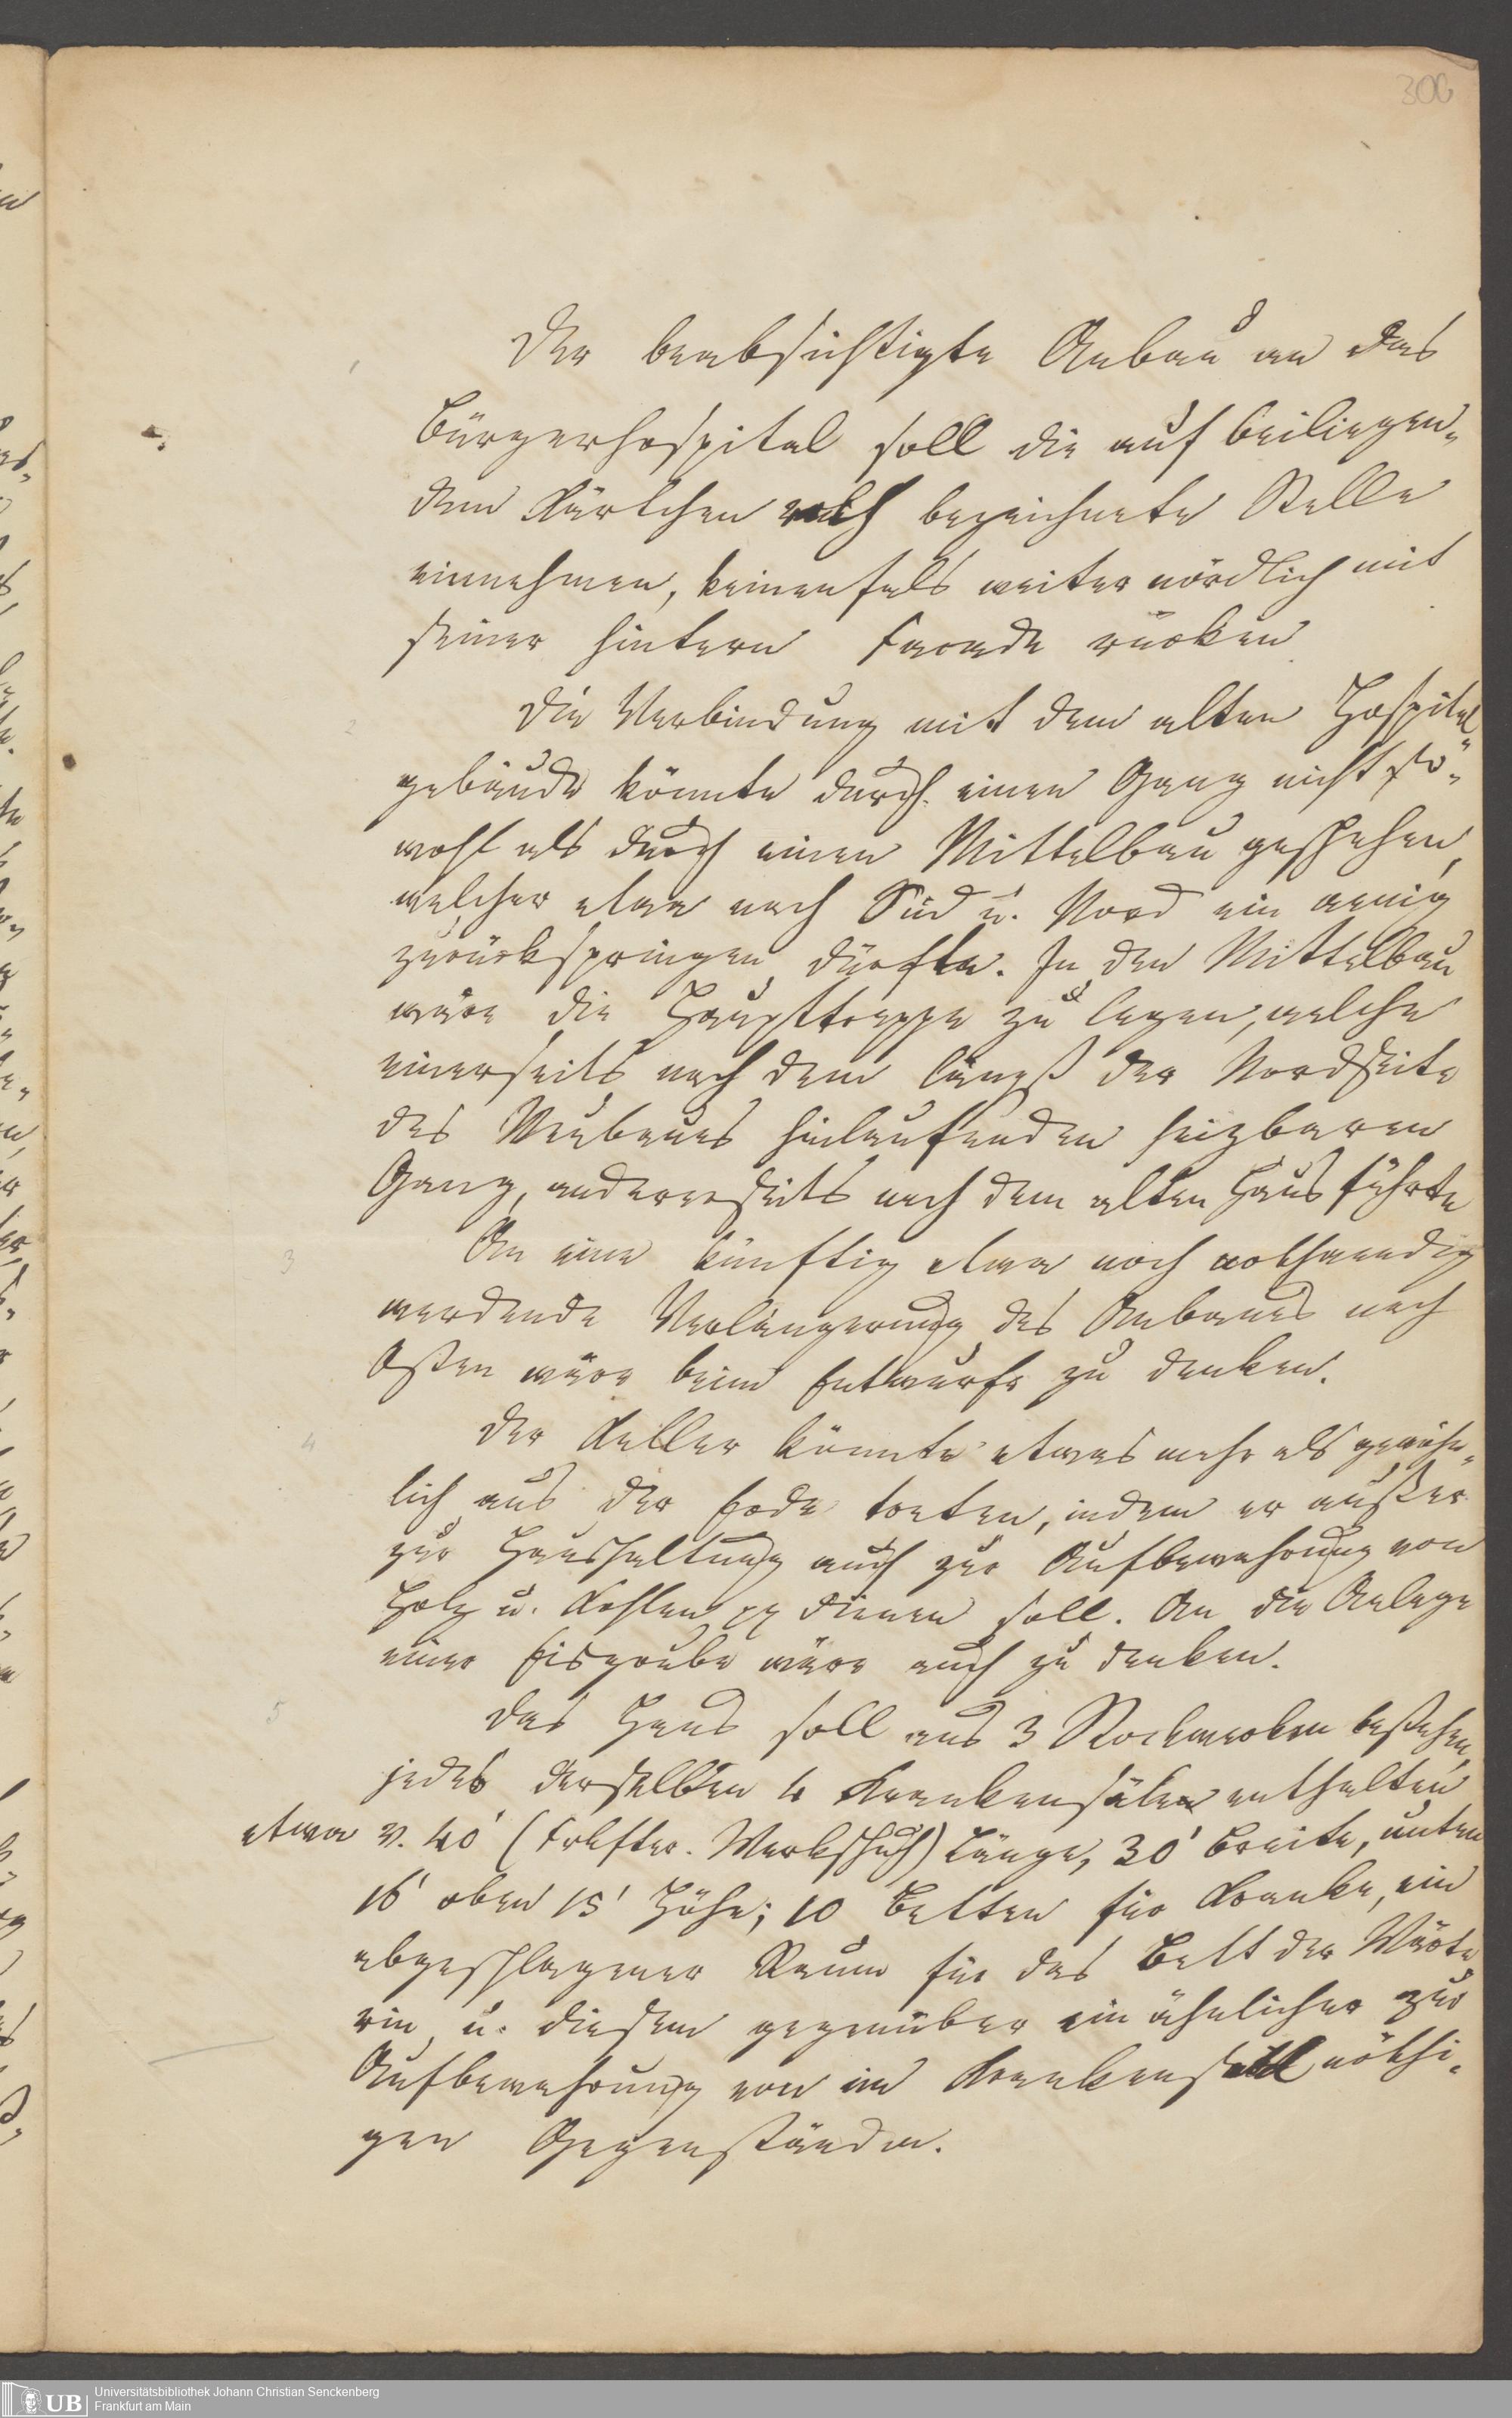 306
1
Der beabsichtigte Anbau an das
Bürgerhospital soll die auf beiliegen-
dem Kärtchen roth bezeichnete Stelle
einnehmen, keinenfals weiter nördlich mit
seiner hintern Facade rücken
2
Die Verbindung mit dem alten Hospital-
gebäude könnte durch einen Gang nicht so-
wohl als durch einen Mittelbau geschehen,
welcher etwa nach Süd u. Nord ein wenig
zurückspringen dürfte. In den Mittelbau
wäre die Haupttreppe zu legen, welche
einerseits nach dem längß der Nordseite
des Neubaues hinlaufenden heizbaren
Gang, andererseits nach dem alten Haus führte
3
An eine künftig etwa noch nothwendig
werdende Verlängerung des Anbaues nach
Osten wäre beim Entwurfe zu denken.
4
Der Keller könnte etwas mehr als gewöhn-
lich aus der Erde treten, indem er außer
zur Haushaltung auch zur Aufbewahrung von
Holz u. Kohlen pp dienen soll. An die Anlage
einer Eisgrube wäre auch zu denken.
5
Das Haus soll aus 3 Stockwerken bestehen,
jedes derselben 4 Krankensäle enthalten
etwa v. 40' (Frkfter. Werkschuh) Länge, 30' Breite, unten
16' oben 15' Höhe; 10 Betten für Kranke, ein
abgeschlagener Raum für das Bett der Wärte-
rin u. diesem gegenüber ein ähnlicher zur
Aufbewahrung von im Krankensaal nöthi-
gen Gegenständen.
UB
Universitätsbibliothek Johann Christian Senckenberg
Frankfurt am Main